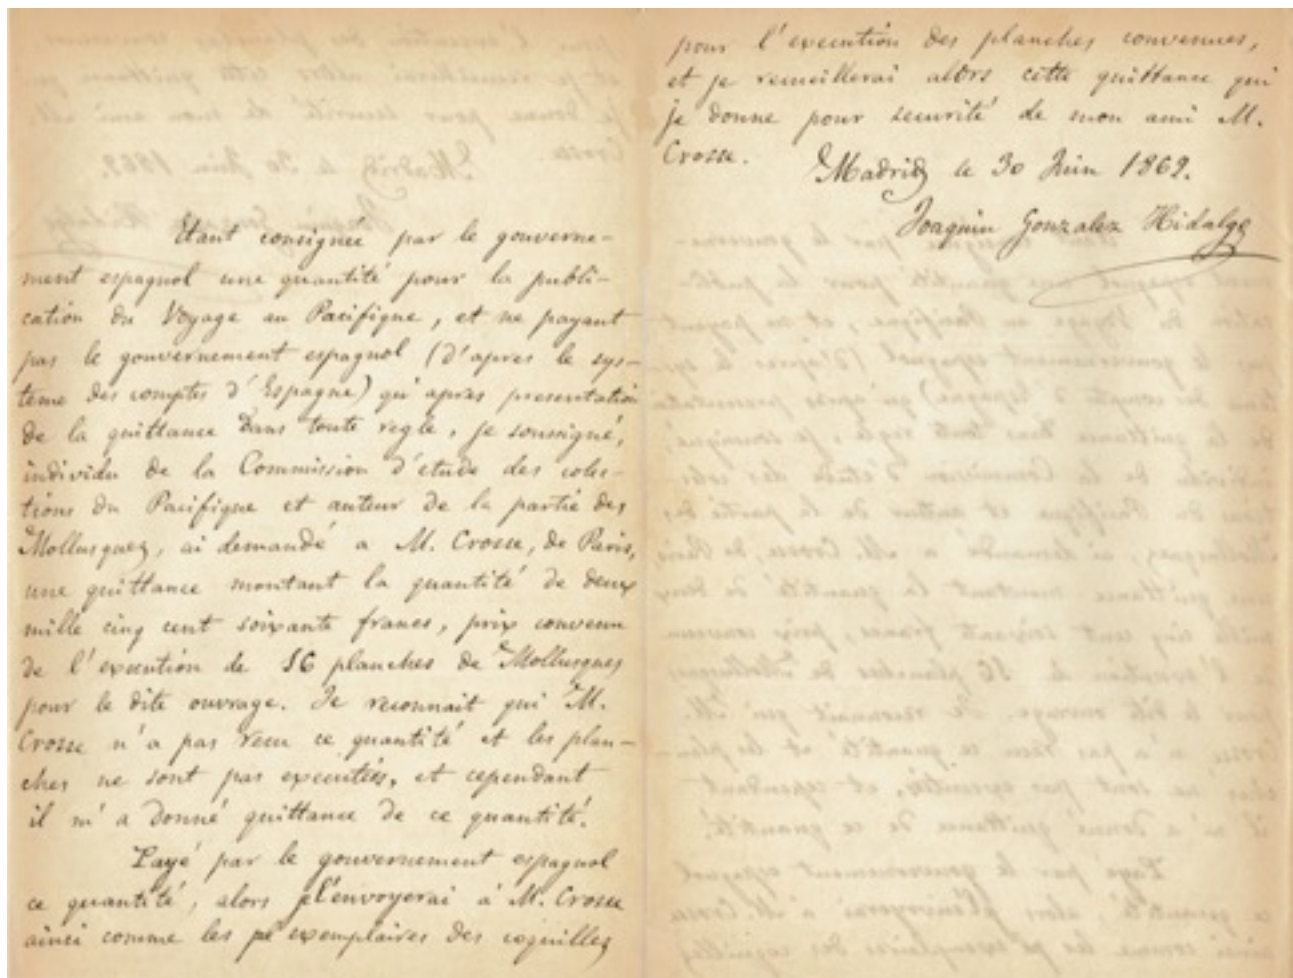 Etant consignée par le gouverne-
ment espagnol une quantité pour la publi-
cation du Voyage au Pacifique, et ne payant
pas le gouvernement espagnol (d'apres le sys-
teme des comptes d'Espagne) qu'apres presentation
de la quittance dans toute regle, je soussigné,
individu de la Commission d'etude des colec-
tions du Pacifique et auteur de la partie des
Mollusques, ai demandé a M. Crosse, de Paris,
une quittance montant la quantité de deux
mille cinq cent soixante francs, prix convenu
de l'execution de 16 planches de Mollusques
pour le dite ouvrage. Je reconnait qui M.
Crosse n'a pas recu ce quantité et les plan-
ches ne sont pas executées, et cependant
il m'a donné quittance de ce quantité.
Payé par le gouvernement espagnol
ce quantité, alors je l'envoyerai à M. Crosse
ainsi comme les exemplaires des coquilles
pour l'execution des planches convenues,
et je recueillerai alors cette quittance qui
je donne pour securité de mon ami M.
Crosse.
Madrid le 30 Juin 1869.
Joaquin Gonzalez Hidalgo